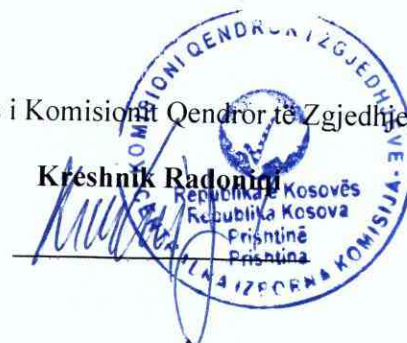 i Komisionit Qendror të Zgjedhje
Kreshnik Radoniqi
KOMISIONI QENDROR I ZGJEDHJEVE
Republika e Kosovës
Republika Kosova
Prishtinë
Prishtina
CENTRALNA IZBORNA KOMISIJA